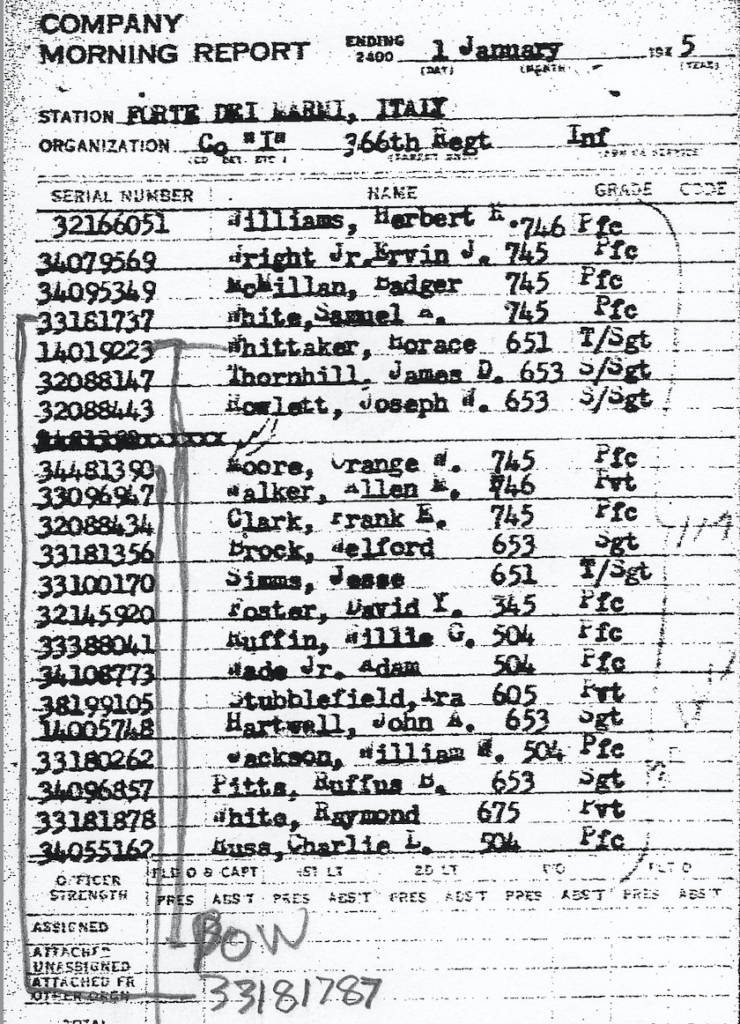 COMPANY
MORNING REPORT ENDING 2400 1 January 194 5
(DAY) (MONTH) (YEAR)
STATION FORTE DEI MARMI, ITALY
ORGANIZATION Co "I" 366th Regt Inf
SERIAL NUMBER NAME GRADE CODE
32166051 Williams, Herbert H. 746 Pfc
34079569 Wright Jr. Ervin J. 745 Pfc
34095349 McMillan, Badger 745 Pfc
33181737 White, Samuel A. 745 Pfc
14019223 Whittaker, Horace 651 T/Sgt
32088147 Thornhill, James D. 653 S/Sgt
32088443 Howlett, Joseph W. 653 S/Sgt
34481390 Moore, Orange W. 745 Pfc
33096947 Walker, Allen E. 746 Pvt
32088434 Clark, Frank E. 745 Pfc
33181356 Brock, Welford 653 Sgt
33100170 Simms, Jesse 651 T/Sgt
32145920 Foster, David Y. 345 Pfc
33388041 Ruffin, Willie G. 504 Pfc
34108773 Wade Jr. Adam 504 Pfc
38199105 Stubblefield, Ira 605 Pvt
14005748 Hartwell, John A. 653 Sgt
33180262 Jackson, William W. 504 Pfc
34096857 Pitts, Ruffus B. 653 Sgt
33181878 White, Raymond 675 Pvt
34055162 Huss, Charlie L. 504 Pfc
OFFICER STRENGTH FLD O & CAPT 1ST LT 2D LT WO FLT O
PRES ABS'T PRES ABS'T PRES ABS'T PRES ABS'T PRES ABS'T
ASSIGNED
ATTACHED UNASSIGNED BOW
ATTACHED FR OTHER ORGN 33181787
TOTAL